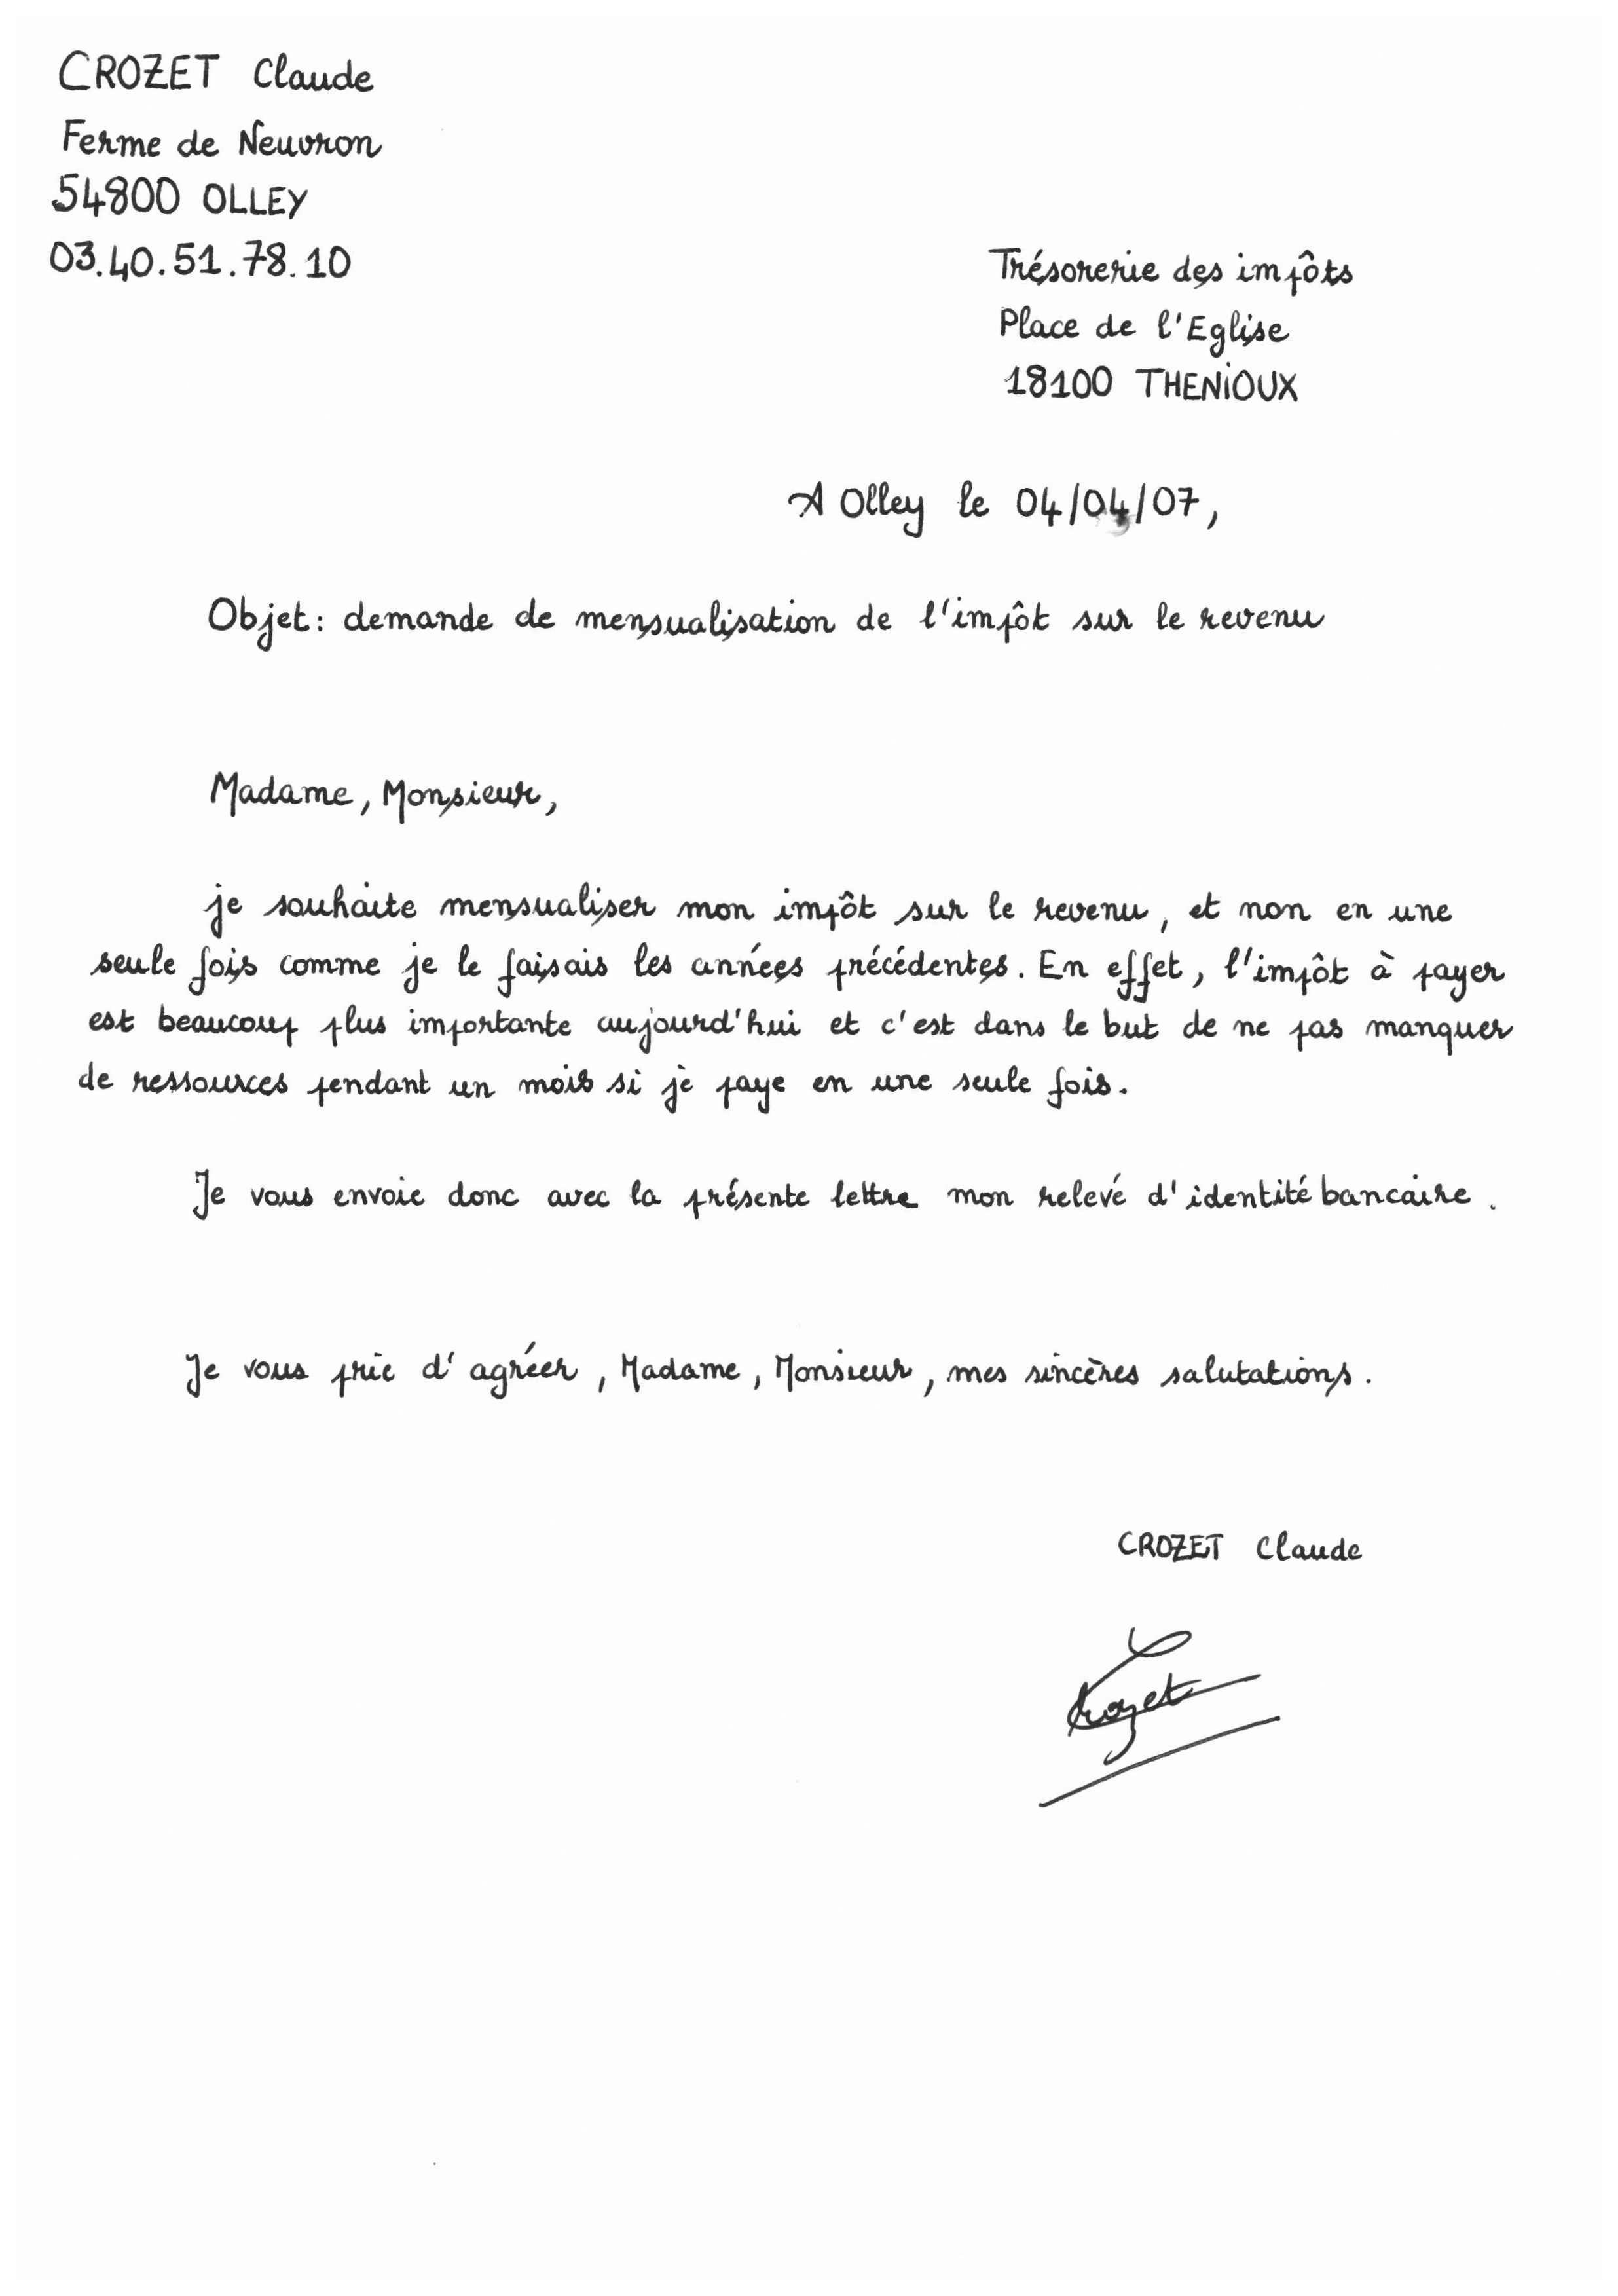 CROZET Claude
Ferme de Neuvron
54800 OLLEY
03.40.51.78.10
Trésorerie des impôts
Place de l'Eglise
18100 THENIOUX
A Olley le 04/04/07,
Objet: demande de mensualisation de l'impôt sur le revenu
Madame, Monsieur,
je souhaite mensualiser mon impôt sur le revenu, et non en une
seule fois comme je le faisais les années précédentes. En effet, l'impôt à payer
est beaucoup plus importante aujourd'hui et c'est dans le but de ne pas manquer
de ressources pendant un mois si je paye en une seule fois.
Je vous envoie donc avec la présente lettre mon relevé d'identité bancaire.
Je vous prie d'agréer, Madame, Monsieur, mes sincères salutations.
CROZET Claude
Crozet